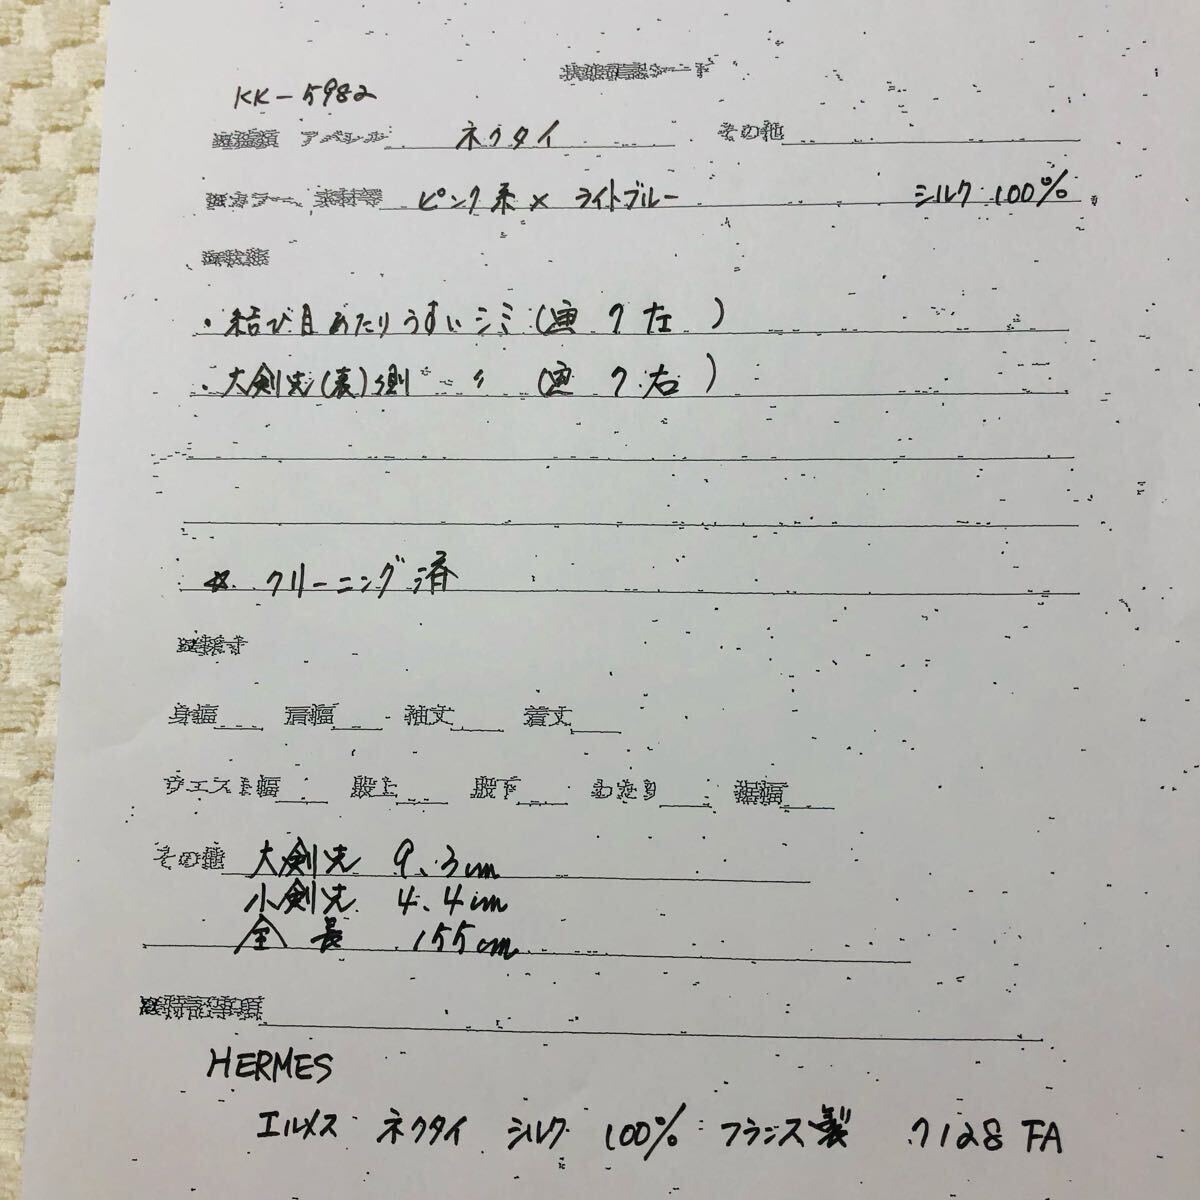 状態確認シート
KK-5982
アパレル ネクタイ その他
カラー、素材等 ピンク系 × ライトブルー シルク 100%
・結び目あたりうすいシミ(画 7 左 )
・大剣先(裏)側 〃 (画 7 右 )
☆ クリーニング済
身幅 肩幅 袖丈 着丈
ウエスト幅 股上 股下 わたり 裾幅
その他 大剣先 9.3cm
小剣先 4.4cm
全長 155cm
※特記事項
HERMES
エルメス ネクタイ シルク 100% フランス製 7128 FA